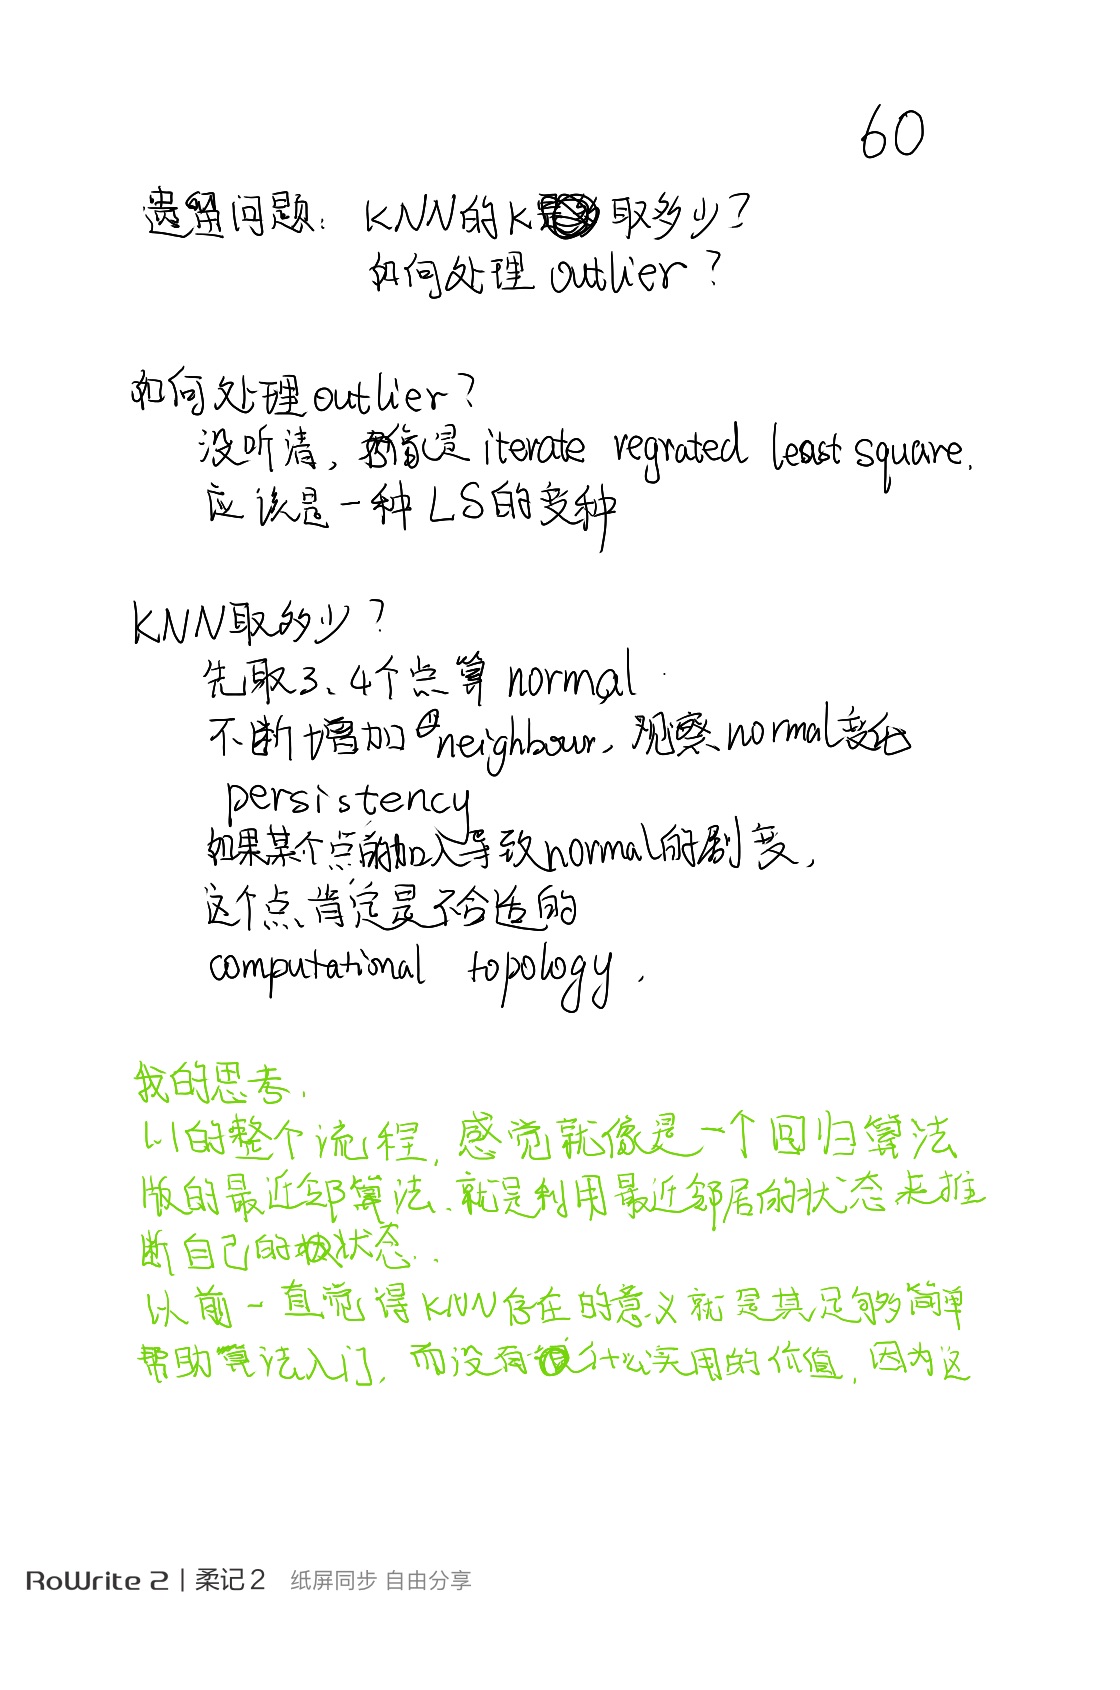 60
遗留问题: KNN的K取多少?
如何处理 outlier?
如何处理outlier?
没听清, 好像是 iterate regrated least square.
应该是一种LS的变种
KNN取多少?
先取3、4个点算 normal
不断增加 neighbour, 观察normal变化
persistency
如果某个点的加入导致normal的剧变,
这个点肯定是不合适的
computational topology.
我的思考.
1.1的整个流程, 感觉就像是一个回归算法
版的最近邻算法.就是利用最近邻居的状态来推
断自己的状态..
以前一直觉得KNN存在的意义就是其足够简单
帮助算法入门, 而没有什么实用的价值, 因为这
RoWrite 2 | 柔记2 纸屏同步 自由分享